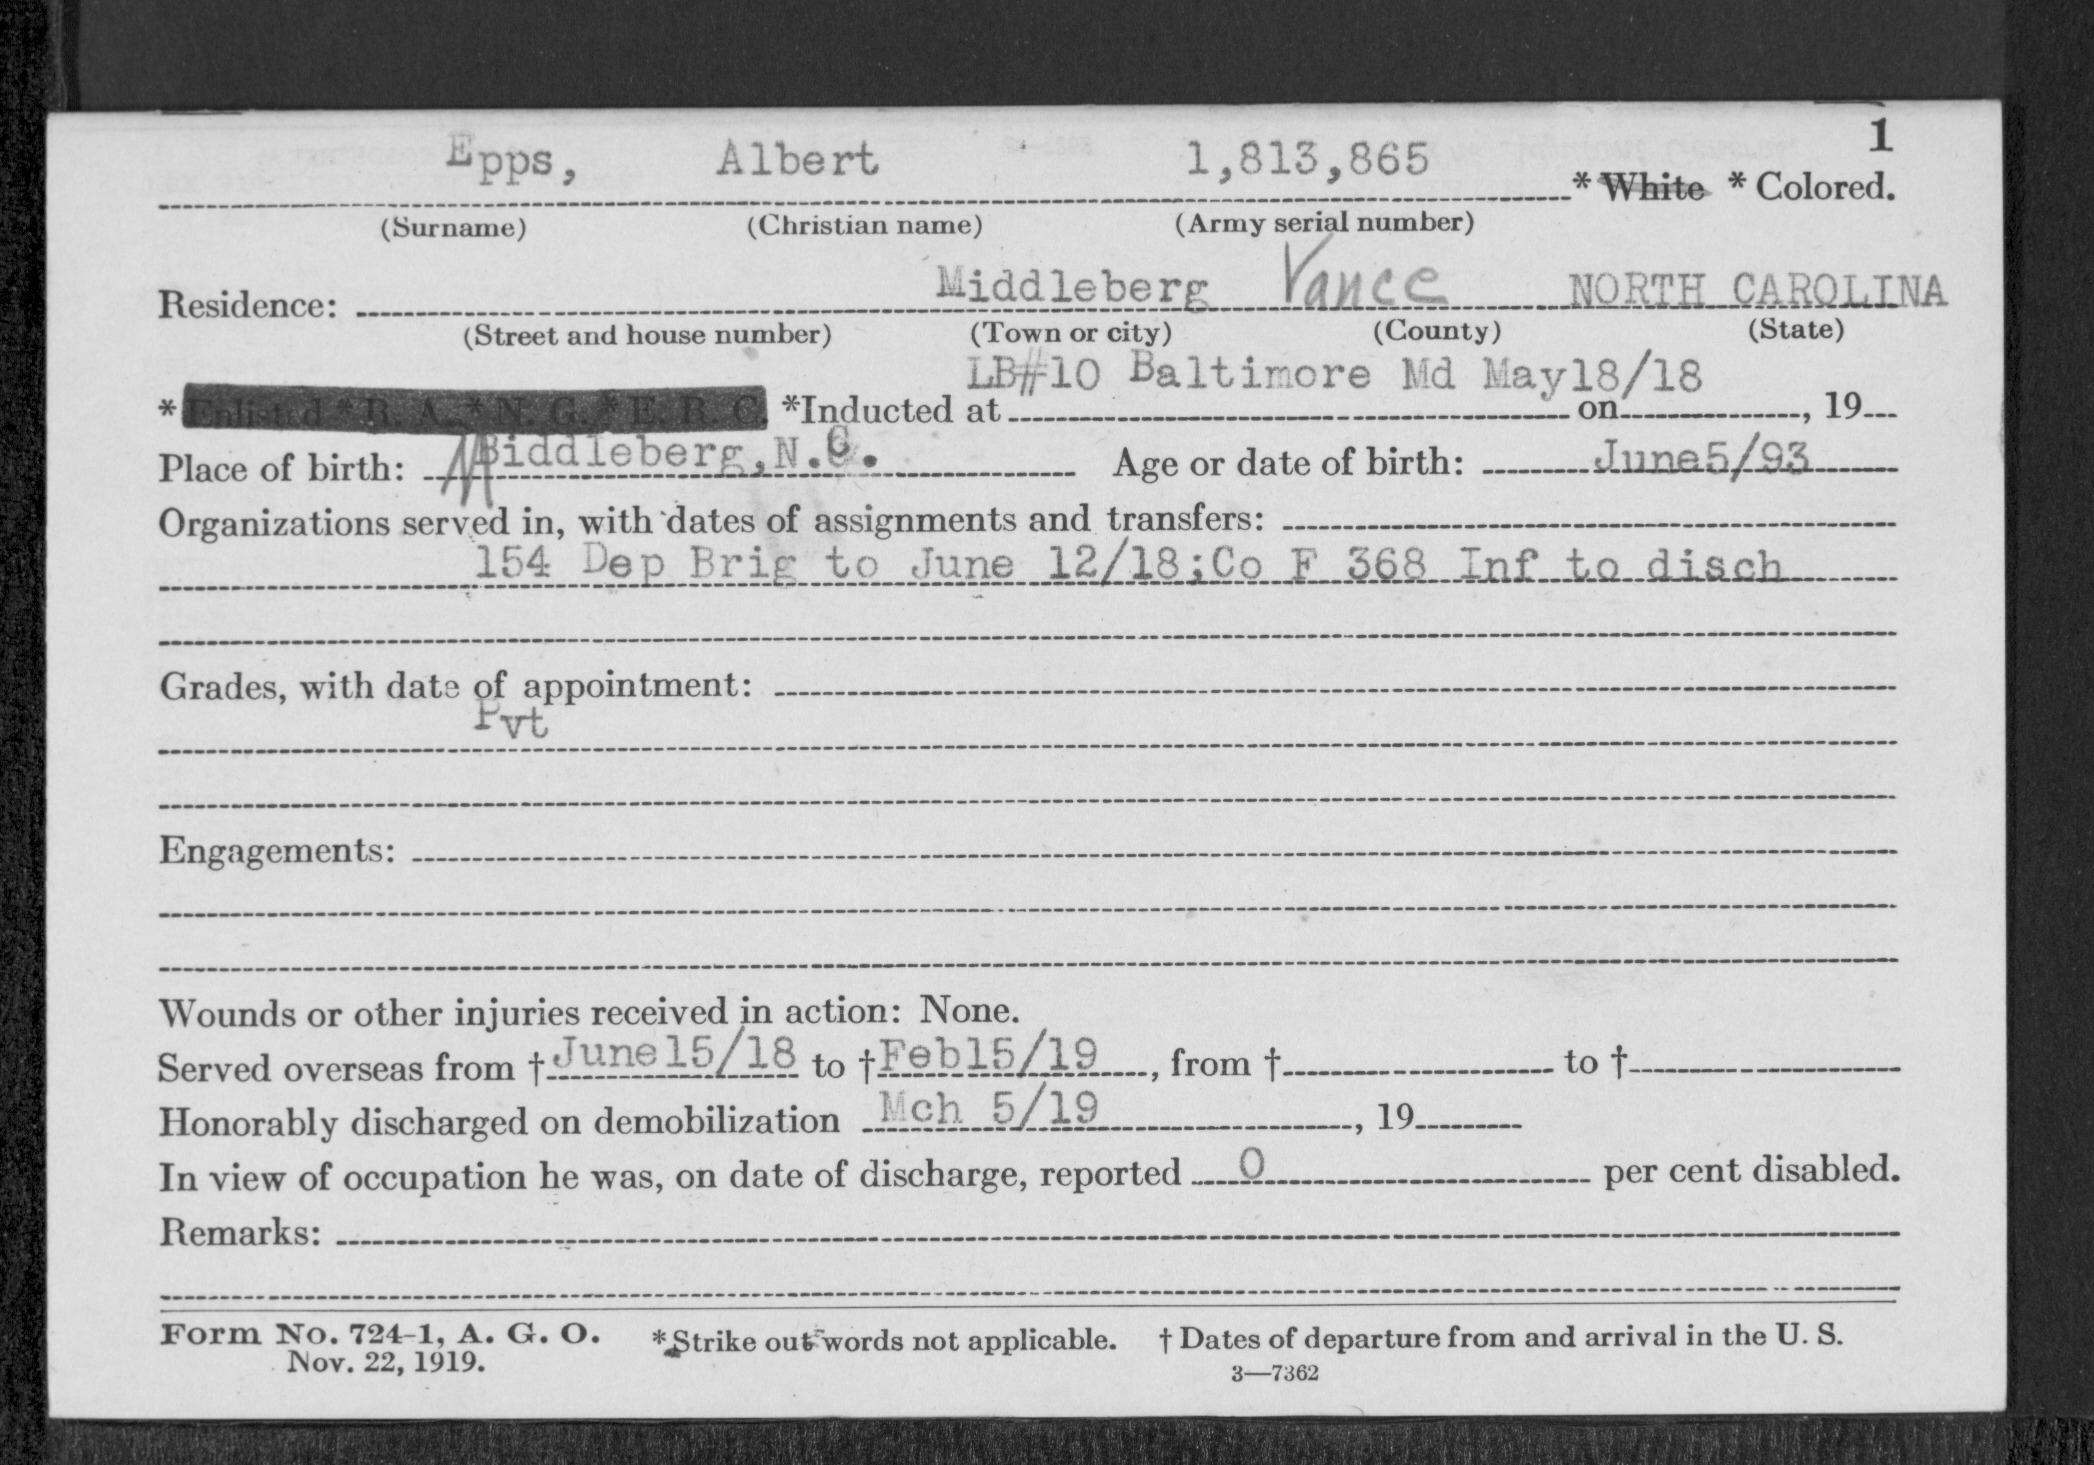 1
Epps, Albert 1,813,865 * White * Colored.
(Surname) (Christian name) (Army serial number)
Residence: Middleberg Vance NORTH CAROLINA
(Street and house number) (Town or city) (County) (State)
LB#10 Baltimore Md May18/18
* Enlisted * R. A. * N. G. * E. R. C. *Inducted at on , 19
Place of birth: Middleberg, N.C. Age or date of birth: June5/93
Organizations served in, with dates of assignments and transfers:
154 Dep Brig to June 12/18;Co F 368 Inf to disch
Grades, with date of appointment:
Pvt
Engagements:
Wounds or other injuries received in action: None.
Served overseas from † June15/18 to † Feb15/19, from † to †
Honorably discharged on demobilization Mch 5/19, 19
In view of occupation he was, on date of discharge, reported 0 per cent disabled.
Remarks:
Form No. 724-1, A. G. O. *Strike out words not applicable. † Dates of departure from and arrival in the U. S.
Nov. 22, 1919. 3—7362